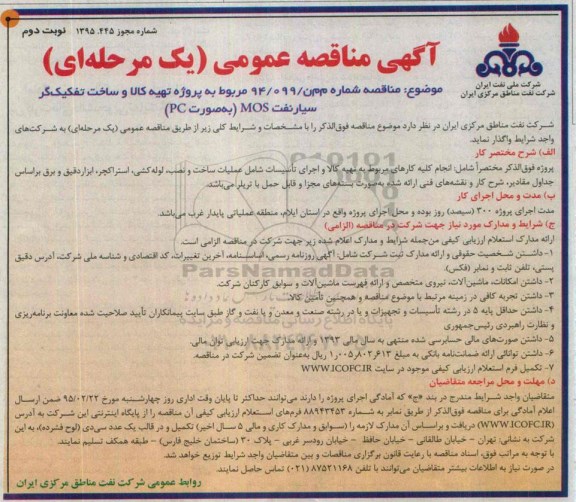 شماره مجوز ۴۴۵. ۱۳۹۵
نوبت دوم
شرکت ملی نفت ایران
شرکت نفت مناطق مرکزی ایران
آگهی مناقصه عمومی (یک مرحله‌ای)
موضوع: مناقصه شماره م‌م‌ن/۹۴/۰۹۹ مربوط به پروژه تهیه کالا و ساخت تفکیک‌گر
سیار نفت MOS (به‌صورت PC)
شرکت نفت مناطق مرکزی ایران در نظر دارد موضوع مناقصه فوق‌الذکر را با مشخصات و شرایط کلی زیر از طریق مناقصه عمومی (یک مرحله‌ای) به شرکت‌های
واجد شرایط واگذار نماید.
الف) شرح مختصر کار
پروژه فوق‌الذکر مختصراً شامل: انجام کلیه کارهای مربوط به تهیه کالا و اجرای تأسیسات شامل عملیات ساخت و نصب، لوله‌کشی، استراکچر، ابزاردقیق و برق براساس
جداول مقادیر، شرح کار و نقشه‌های فنی ارائه شده به‌صورت بسته‌های مجزا و قابل حمل با تریلر می‌باشد.
ب) مدت و محل اجرای کار
مدت اجرای پروژه ۳۰۰ (سیصد) روز بوده و محل اجرای پروژه واقع در استان ایلام، منطقه عملیاتی پایدار غرب می‌باشد.
ج) شرایط و مدارک مورد نیاز جهت شرکت در مناقصه (الزامی)
ارائه مدارک استعلام ارزیابی کیفی من‌جمله شرایط و مدارک اعلام شده زیر جهت شرکت در مناقصه الزامی است.
۱- داشتن شخصیت حقوقی و ارائه مدارک ثبت شرکت شامل: آگهی روزنامه رسمی، اساسنامه، آخرین تغییرات، کد اقتصادی و شناسه ملی شرکت، آدرس دقیق
پستی، تلفن ثابت و نمابر (فکس).
۲- داشتن امکانات، ماشین‌آلات، نیروی متخصص و ارائه فهرست ماشین‌آلات و سوابق کارکنان شرکت.
۳- داشتن تجربه کافی در زمینه مرتبط با موضوع مناقصه و همچنین تأمین کالا.
۴- داشتن حداقل پایه ۵ در رشته تأسیسات و تجهیزات و یا در رشته صنعت و معدن و یا نفت و گاز طبق سایت پیمانکاران تأیید صلاحیت شده معاونت برنامه‌ریزی
و نظارت راهبردی رئیس‌جمهوری
۵- داشتن صورت‌های مالی حسابرسی شده منتهی به سال مالی ۱۳۹۳ و ارائه مدارک جهت ارزیابی توان مالی.
۶- داشتن توانائی ارائه ضمانت‌نامه بانکی به مبلغ ۱,۰۰۵,۸۰۳,۶۱۳ ریال به‌عنوان تضمین شرکت در مناقصه.
۷- تکمیل فرم استعلام ارزیابی کیفی موجود در سایت WWW.ICOFC.IR
د) مهلت و محل مراجعه متقاضیان
متقاضیان واجد شرایط مندرج در بند «ج» که آمادگی اجرای پروژه را دارند می‌توانند حداکثر تا پایان وقت اداری روز چهارشنبه مورخ ۹۵/۰۲/۲۲ ضمن ارسال
اعلام آمادگی برای مناقصه فوق‌الذکر از طریق نمابر به شماره ۸۸۹۴۳۴۵۳ فرم‌های استعلام ارزیابی کیفی آن مناقصه را از پایگاه اینترنتی این شرکت به آدرس
(WWW.ICOFC.IR) دریافت و براساس آن مدارک لازمه را (سوابق و مدارک کاری و مالی ۵ سال اخیر) تکمیل و در قالب یک عدد سی‌دی (لوح فشرده)، به این
شرکت به نشانی: تهران - خیابان طالقانی - خیابان حافظ - خیابان رودسر غربی - پلاک ۳۰ (ساختمان خلیج فارس) - طبقه همکف تسلیم نمایند.
با توجه به مراتب فوق، اسناد مناقصه با رعایت قانون برگزاری مناقصات و بین متقاضیان واجد شرایط توزیع خواهد شد.
در صورت نیاز به اطلاعات بیشتر متقاضیان می‌توانند با تلفن ۸۷۵۲۱۱۶۸ (۰۲۱) تماس حاصل نمایند.
روابط عمومی شرکت نفت مناطق مرکزی ایران
ParsNamadData